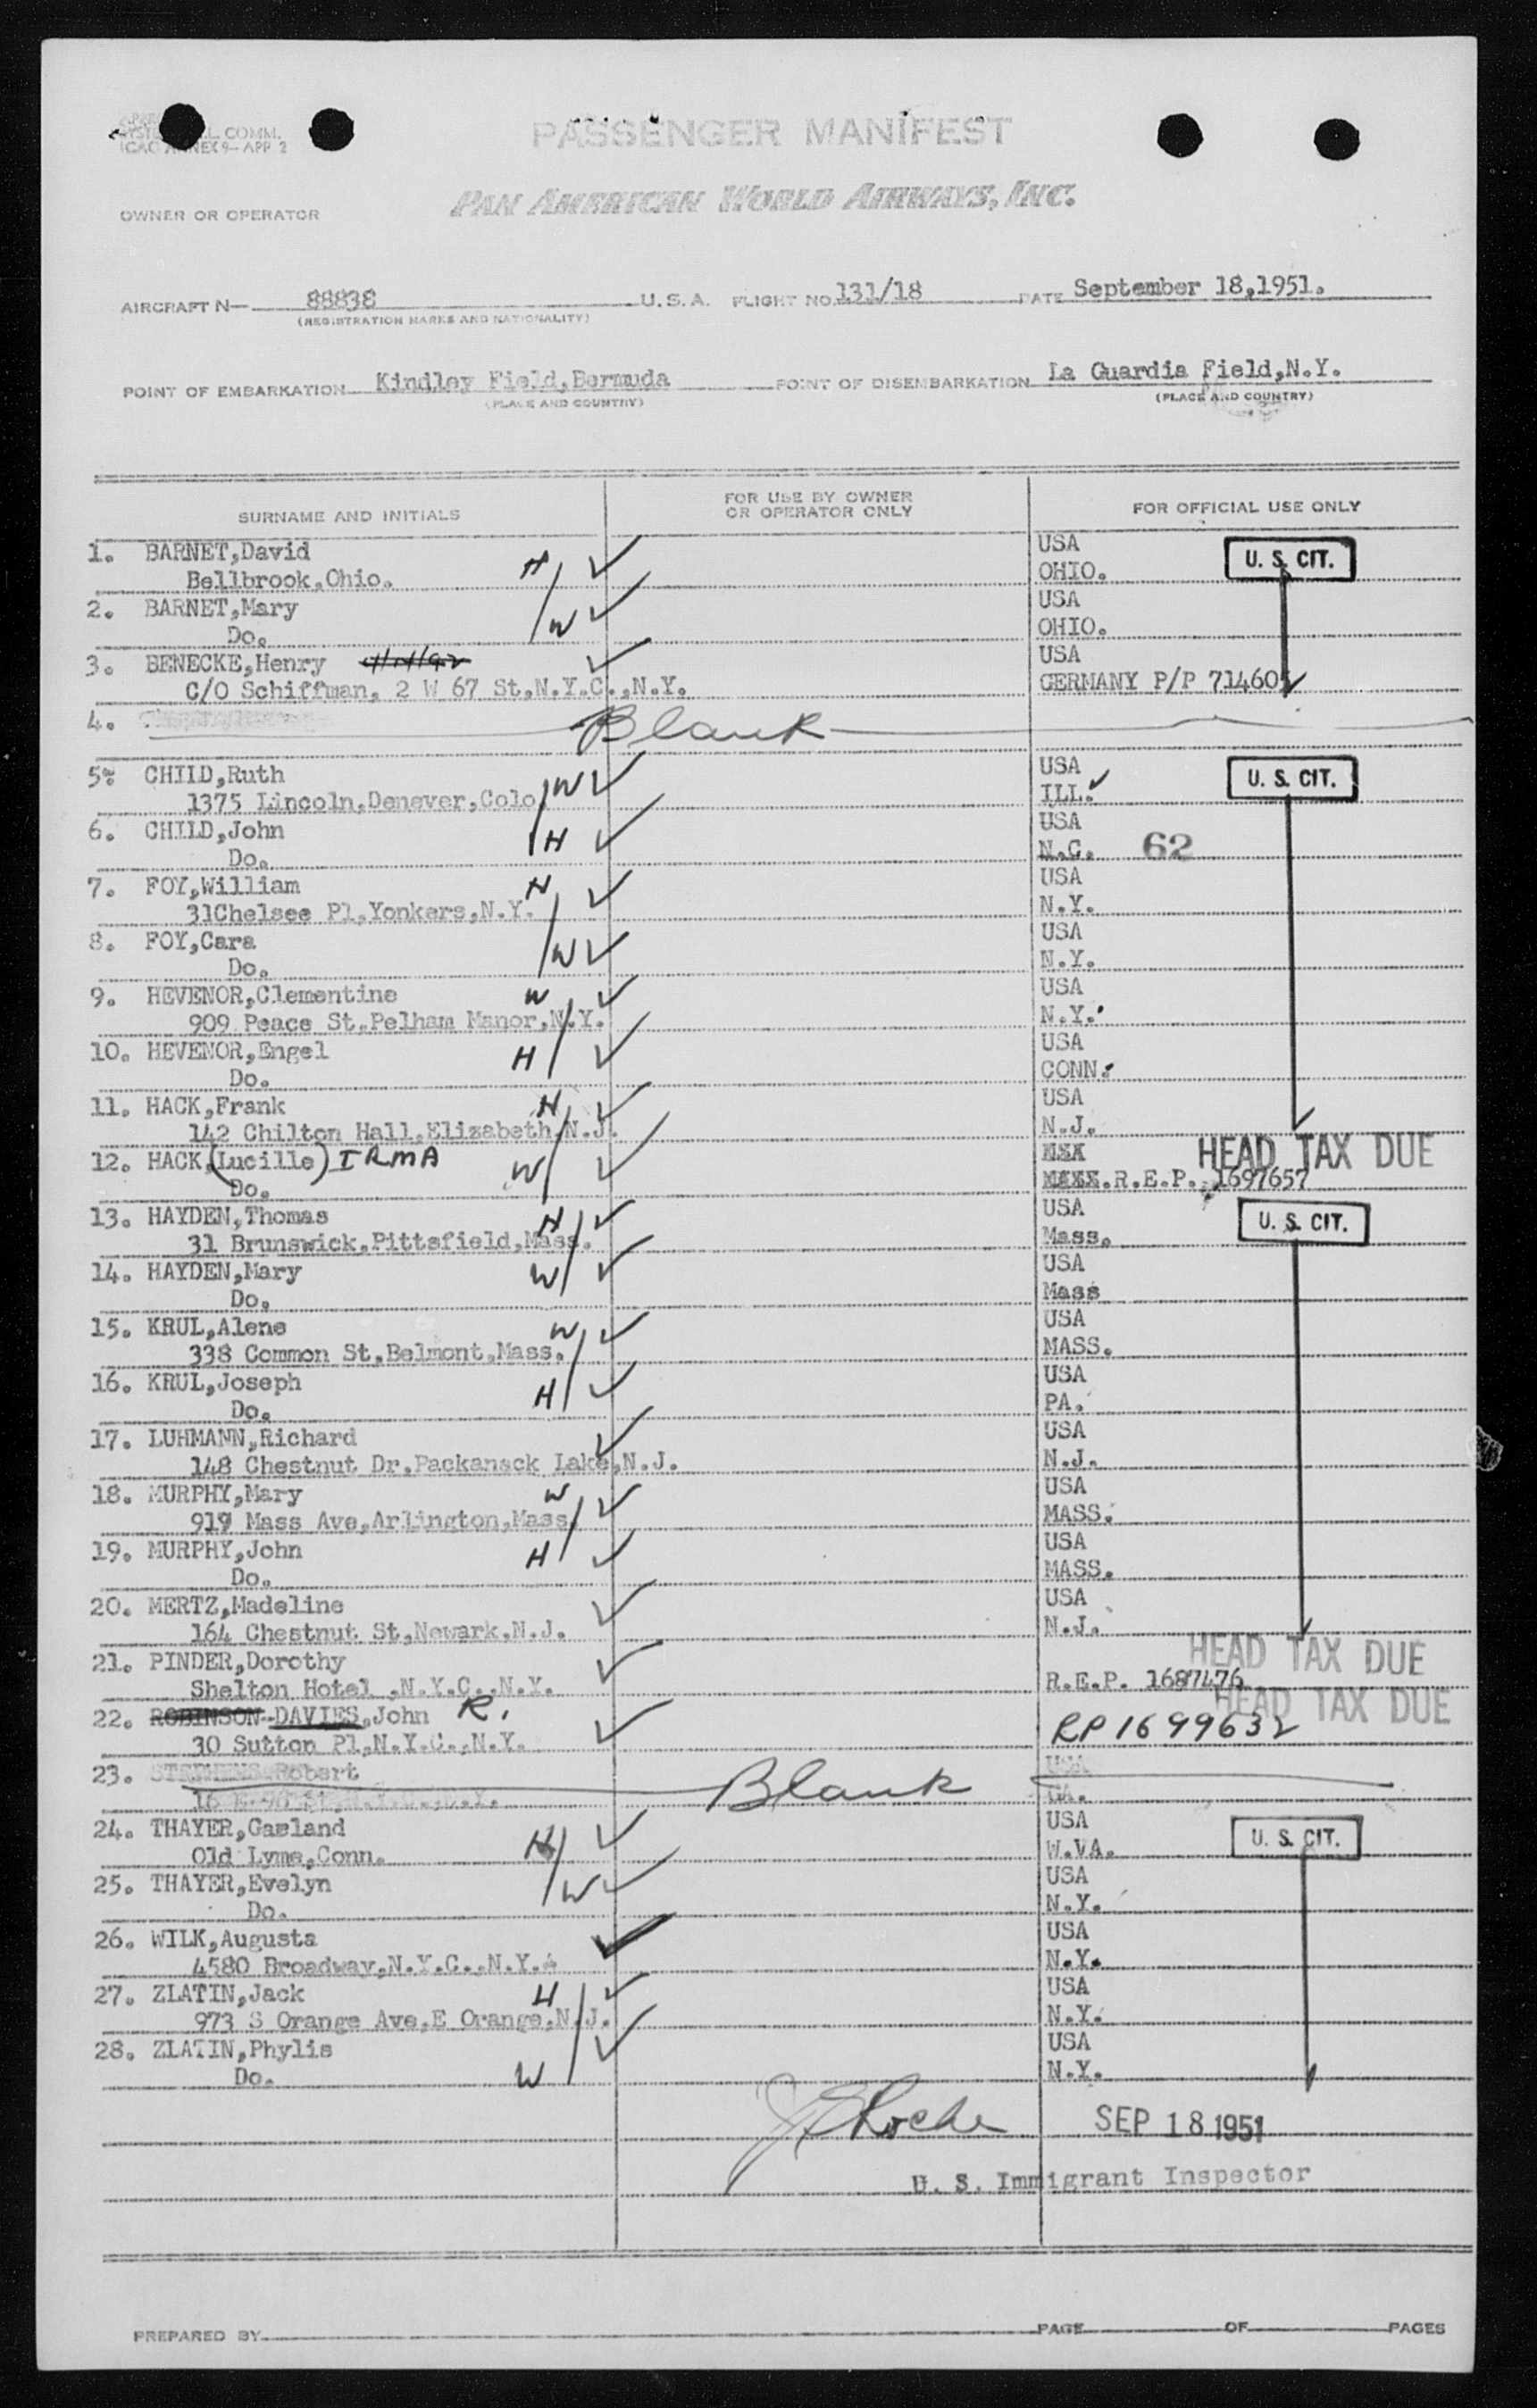 L COMM.
ICAO ANNEX 9- APP 2
PASSENGER MANIFEST
PAN AMERICAN WORLD AIRWAYS, INC.
OWNER OR OPERATOR
AIRCRAFT N— 88838 U. S. A. FLIGHT NO. 131/18 DATE September 18,1951.
(REGISTRATION MARKS AND NATIONALITY)
POINT OF EMBARKATION Kindley Field,Bermuda POINT OF DISEMBARKATION La Guardia Field,N.Y.
(PLACE AND COUNTRY) (PLACE AND COUNTRY)
SURNAME AND INITIALS FOR USE BY OWNER OR OPERATOR ONLY FOR OFFICIAL USE ONLY
1. BARNET,David H USA U. S. CIT.
Bellbrook,Ohio. OHIO.
2. BARNET,Mary USA
Do. W OHIO.
3. BENECKE,Henry USA
C/O Schiffman, 2 W 67 St,N.Y.C.,N.Y. GERMANY P/P 714605
4. Blank
5. CHILD,Ruth W USA U. S. CIT.
1375 Lincoln,Denever,Colo ILL.
6. CHILD,John H USA
Do. N.C. 62
7. FOY,William H USA
31Chelsee Pl,Yonkers,N.Y. N.Y.
8. FOY,Cara W USA
Do. N.Y.
9. HEVENOR,Clementine W USA
909 Peace St.Pelham Manor,N.Y. N.Y.
10. HEVENOR,Engel H USA
Do. CONN.
11. HACK,Frank H USA
142 Chilton Hall,Elizabeth,N.J. N.J.
12. HACK,(Lucille) IRMA W HEAD TAX DUE
Do. R.E.P. 1697657
13. HAYDEN,Thomas H USA U. S. CIT.
31 Brunswick,Pittsfield,Mass. Mass.
14. HAYDEN,Mary W USA
Do. Mass
15. KRUL,Alene W USA
338 Common St,Belmont,Mass. MASS.
16. KRUL,Joseph H USA
Do. PA.
17. LUHMANN,Richard USA
148 Chestnut Dr.Packanack Lake,N.J. N.J.
18. MURPHY,Mary W USA
919 Mass Ave,Arlington,Mass. MASS.
19. MURPHY,John H USA
Do. MASS.
20. MERTZ,Madeline USA
164 Chestnut St,Newark,N.J. N.J.
21. PINDER,Dorothy HEAD TAX DUE
Shelton Hotel ,N.Y.C.,N.Y. R.E.P. 1687476
22. ROBINSON-DAVIES,John R. HEAD TAX DUE
30 Sutton Pl,N.Y.C.,N.Y. RP 1699632
23. STEPHENS,Robert Blank USA
24. THAYER,Garland H USA U. S. CIT.
Old Lyme,Conn. W.VA.
25. THAYER,Evelyn W USA
Do. N.Y.
26. WILK,Augusta USA
4580 Broadway,N.Y.C.,N.Y. N.Y.
27. ZLATIN,Jack H USA
973 S Orange Ave,E Orange,N.J. N.Y.
28. ZLATIN,Phylis USA
Do. W N.Y.
Roche SEP 18 1951
U. S. Immigrant Inspector
PREPARED BY PAGE OF PAGES